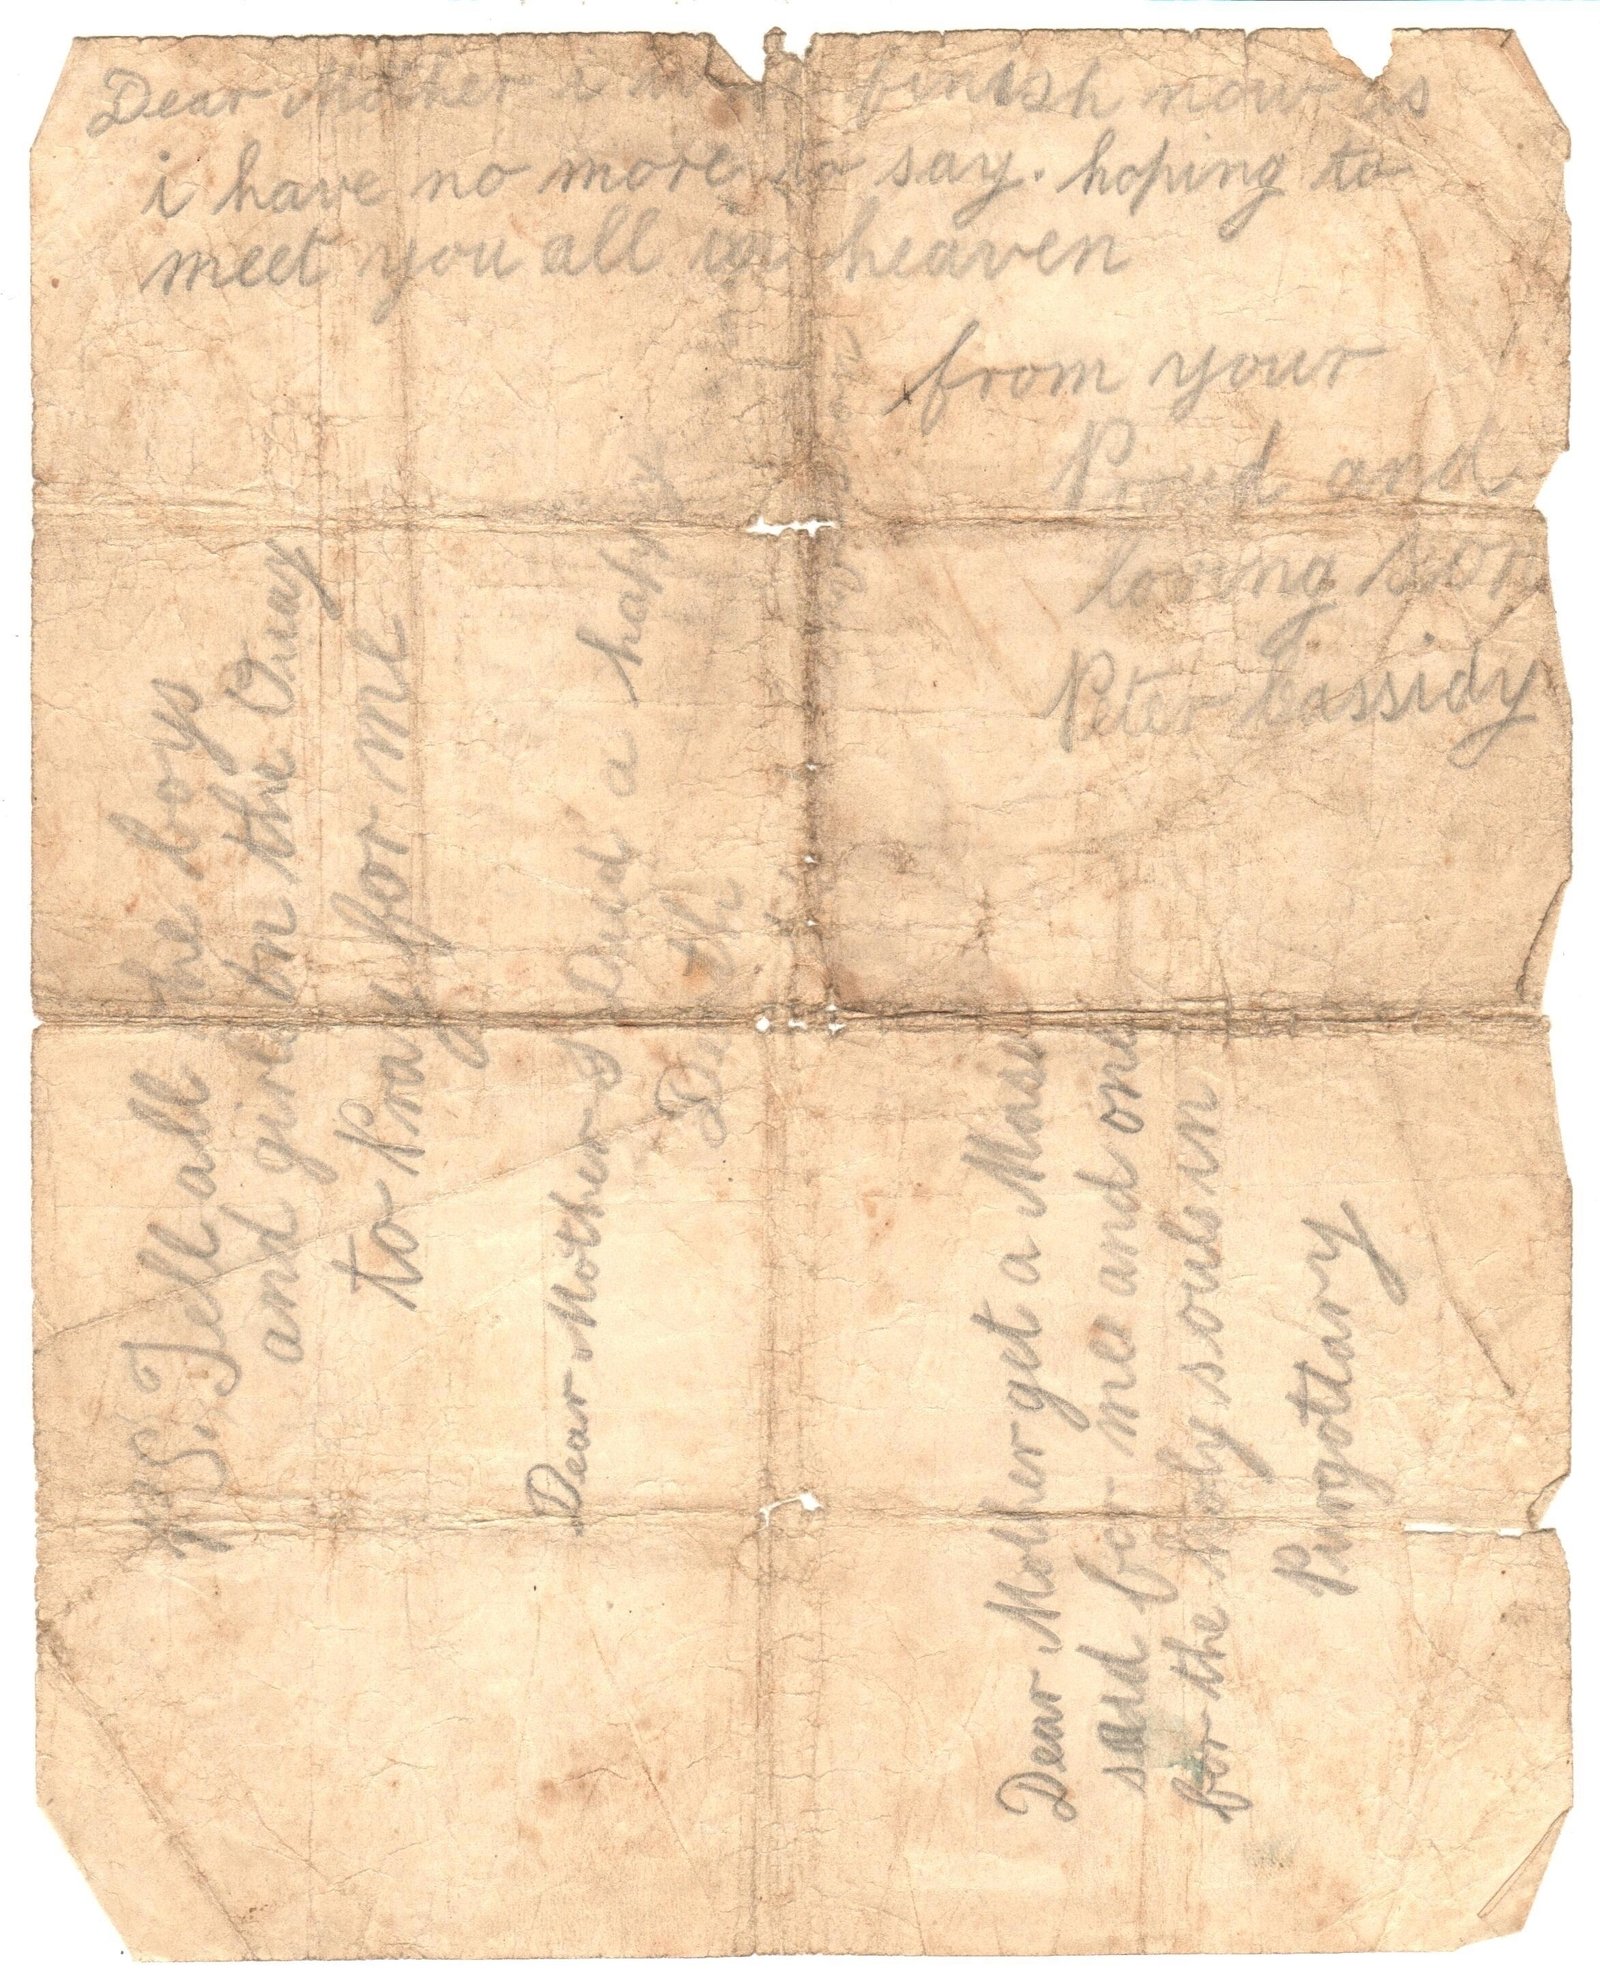 Dear Mother i must finish now as
i have no more to say. hoping to
meet you all in heaven
from your
Proud and
loving son
Peter Cassidy
P.S. Tell all the boys
and girls on the Quay
to Pray for me
Dear Mother I Died a happy
Death
Dear Mother get a Mass
said for me and one
for the holy souls in
Purgottary